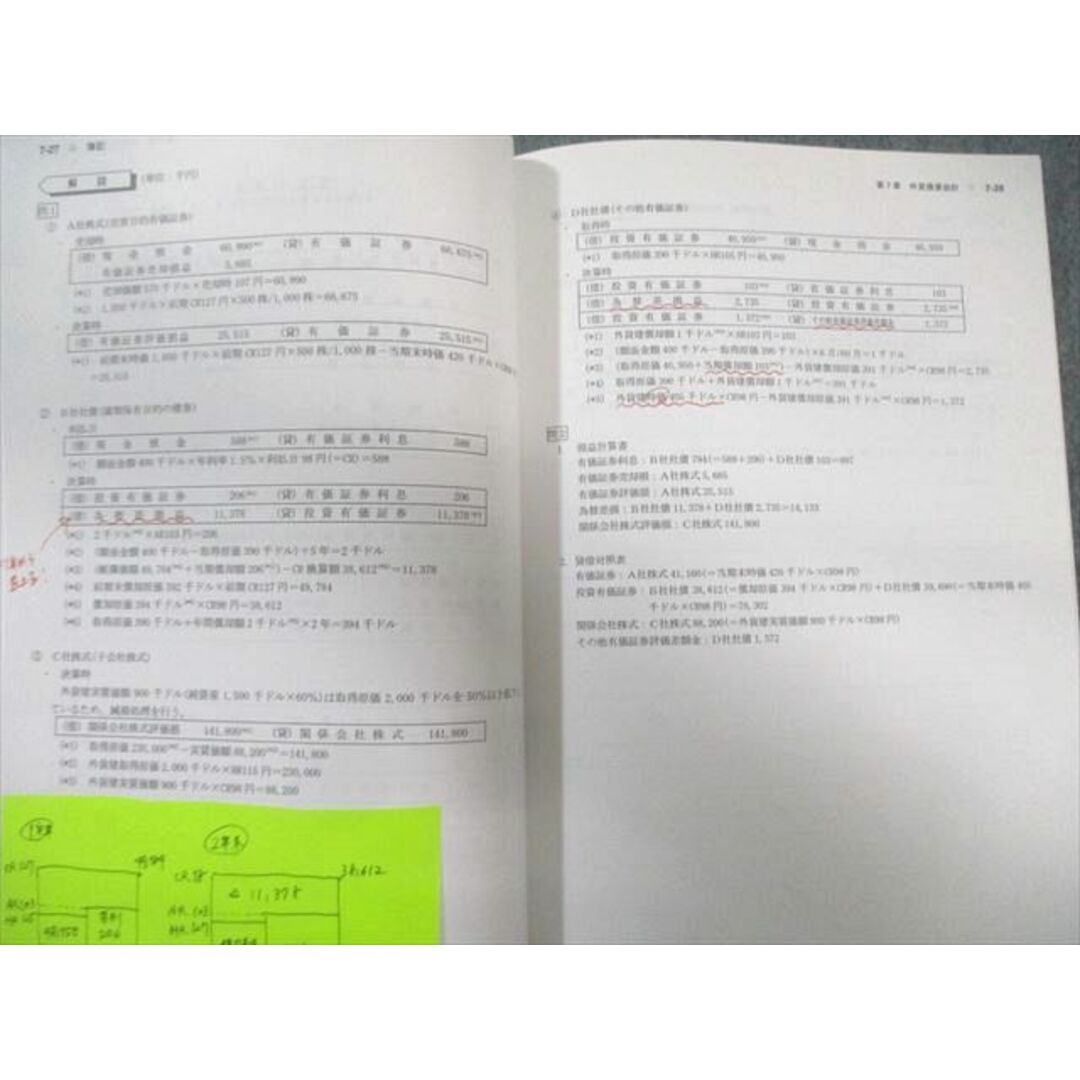 7-27 ☆ 簿記
解説 (単位：千円)
問1
① A社株式(売買目的有価証券)
・ 売却時
(借) 現金預金 60,990 (貸) 有価証券 66,675
有価証券売却損益 5,685
(*1) 売却価額570千ドル×売却時107円=60,990
(*2) 1,050千ドル×前期CR127円×500株/1,000株=66,675
・ 決算時
(借) 有価証券評価損益 25,515 (貸) 有価証券 25,515
=25,515
② B社社債(満期保有目的の債券)
・ 利払日
(借) 現金預金 588 (貸) 有価証券利息 588
(*1) 額面金額400千ドル×年利率1.5%×利払日98円(=CR)=588
・ 決算時
(借) 投資有価証券 206 (貸) 有価証券利息 206
(借) 為替差損益 11,378 (貸) 投資有価証券 11,378
(*1) 2千ドル×AR103円=206
(*2) (額面金額400千ドル-取得原価390千ドル)÷5年=2千ドル
(*3) (帳簿価額49,784+当期償却額206)-CR換算額38,612=11,378
(*4) 前期末償却原価392千ドル×前期CR127円=49,784
(*5) 償却原価394千ドル×CR98円=38,612
(*6) 取得原価390千ドル+年間償却額2千ドル×2年=394千ドル
③ C社株式(子会社株式)
・ 決算時
外貨建実質価額900千ドル(純資産1,500千ドル×60%)は取得原価2,000千ドルを50%以上
ているため、減損処理を行う。
(借) 関係会社株式評価損 141,800 (貸) 関係会社株式 141,800
(*1) 取得原価230,000-実質価額88,200=141,800
(*2) 外貨建取得原価2,000千ドル×HR115円=230,000
(*3) 外貨建実質価額900千ドル×CR98円=88,200
1年末
2年末
38,612
△11,378
206
第7章 外貨換算会計 ☆ 7-28
④ D社社債(その他有価証券)
・ 取得時
(借) 投資有価証券 40,950 (貸) 現金預金 40,950
(*1) 取得原価390千ドル×HR105円=40,950
・ 決算時
(借) 投資有価証券 103 (貸) 有価証券利息 103
(借) 為替差損益 2,735 (貸) 投資有価証券 2,735
(借) 投資有価証券 1,372 (貸) その他有価証券評価差額金 1,372
(*1) 外貨建償却額1千ドル×AR103円=103
(*2) (額面金額400千ドル-取得原価390千ドル)×6月/60月=1千ドル
(*3) (取得原価40,950+当期償却額103)-外貨建償却原価391千ドル×CR98円=2,735
(*4) 取得原価390千ドル+外貨建償却額1千ドル=391千ドル
(*5) 外貨建時価405千ドル×CR98円-外貨建償却原価391千ドル×CR98円=1,372
問2
1. 損益計算書
有価証券利息：B社社債794(=588+206)+D社社債103=897
有価証券売却損：A社株式5,685
有価証券評価損：A社株式25,515
為替差損：B社社債11,378+D社社債2,735=14,113
関係会社株式評価損：C社株式141,800
2. 貸借対照表
有価証券：A社株式41,160(=当期末時価420千ドル×CR98円)
投資有価証券：B社社債38,612(=償却原価394千ドル×CR98円)+D社社債39,690(=当期末時価405
千ドル×CR98円)=78,302
関係会社株式：C社株式88,200(=外貨建実質価額900千ドル×CR98円)
その他有価証券評価差額金：D社社債1,372